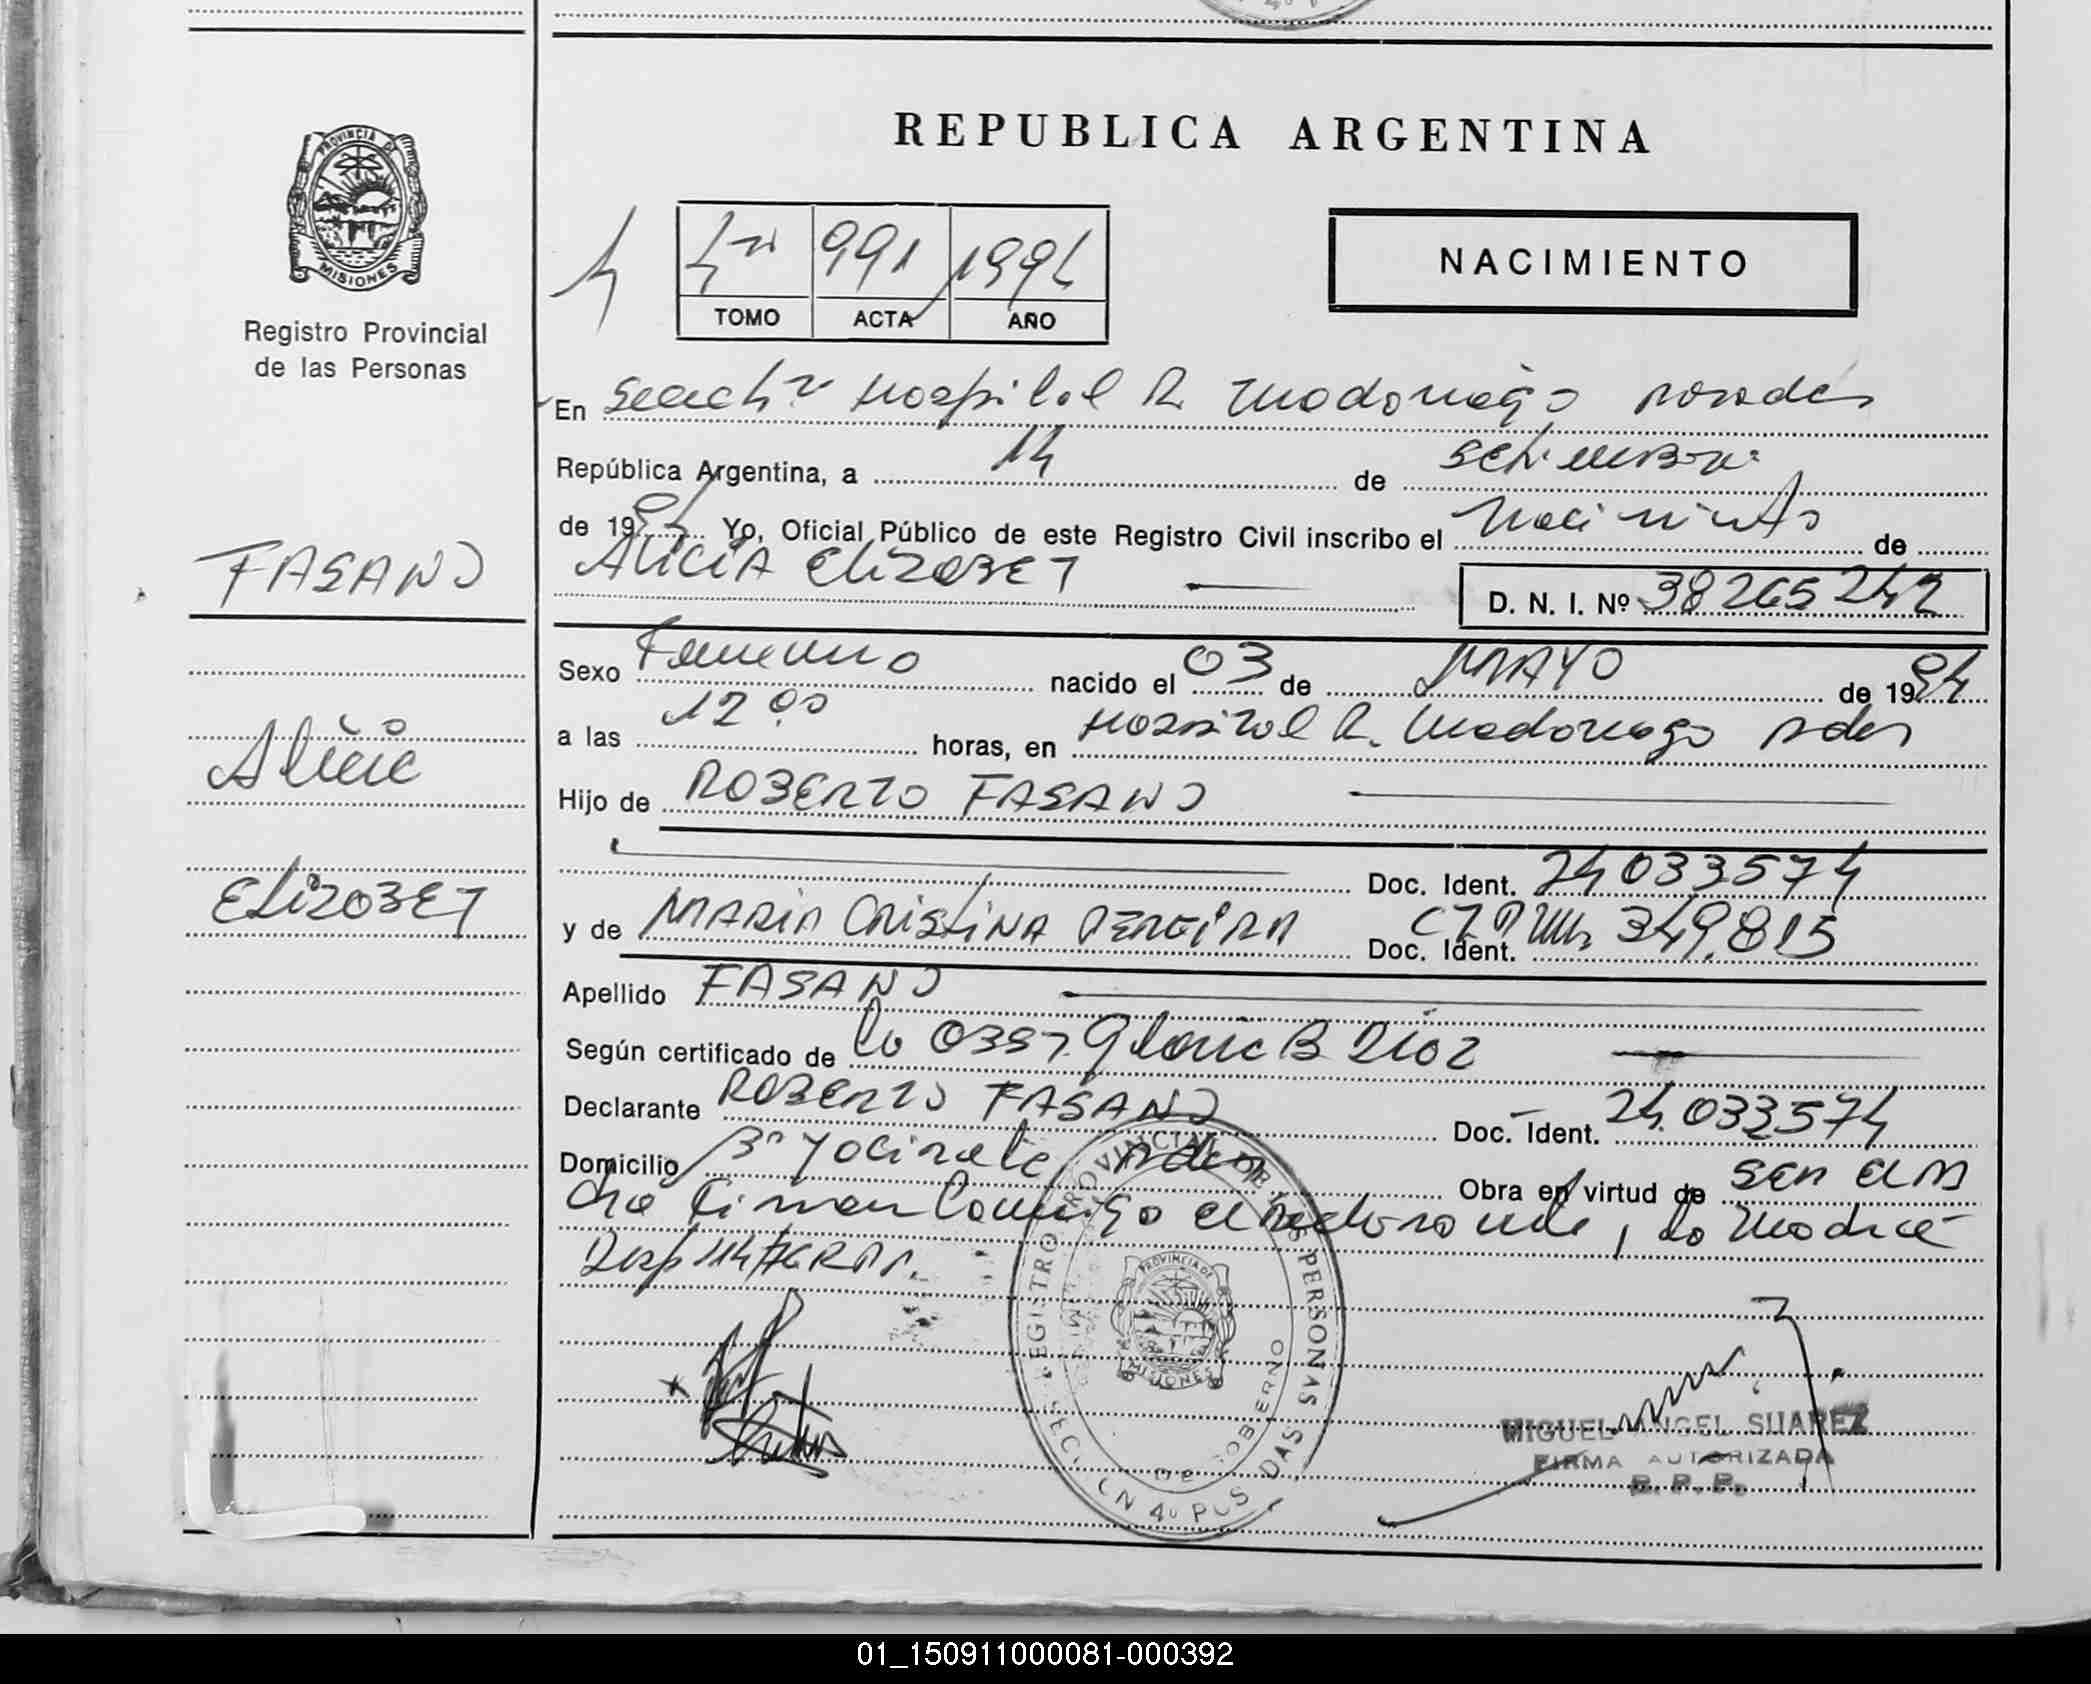 REPUBLICA ARGENTINA
PROVINCIA DE
MISIONES
Registro Provincial
de las Personas
4 4to 991 1994
TOMO ACTA AÑO
NACIMIENTO
En Secc 4ta Hospital R. Madariaga Posadas
República Argentina, a 14 de Setiembre
de 1994 Yo, Oficial Público de este Registro Civil inscribo el Nacimiento de
ALICIA ELIZABET D. N. I. Nº 38265242
FASANO
Sexo Femenino nacido el 03 de MAYO de 1994
a las 12 00 horas, en Hospital R. Madariaga Pdas
Alicia
Hijo de ROBERTO FASANO
Doc. Ident. 24033574
ELIZABET
y de MARIA CRISTINA PEREIRA Doc. Ident. 349.815
Apellido FASANO
Según certificado de la Obst. Gloria B Diaz
Declarante ROBERTO FASANO Doc. Ident. 24.033574
Domicilio Bº Yacirate Pdas Obra en virtud de ser el P
dre Firman Conmigo el Declarante, la Madre
Disp
REGISTRO PROVINCIAL DE LAS PERSONAS
PROVINCIA DE
MISIONES
DE GOBIERNO
SECCION 4a POSADAS
MIGUEL ANGEL SUAREZ
FIRMA AUTORIZADA
R. P. P.
01_150911000081-000392